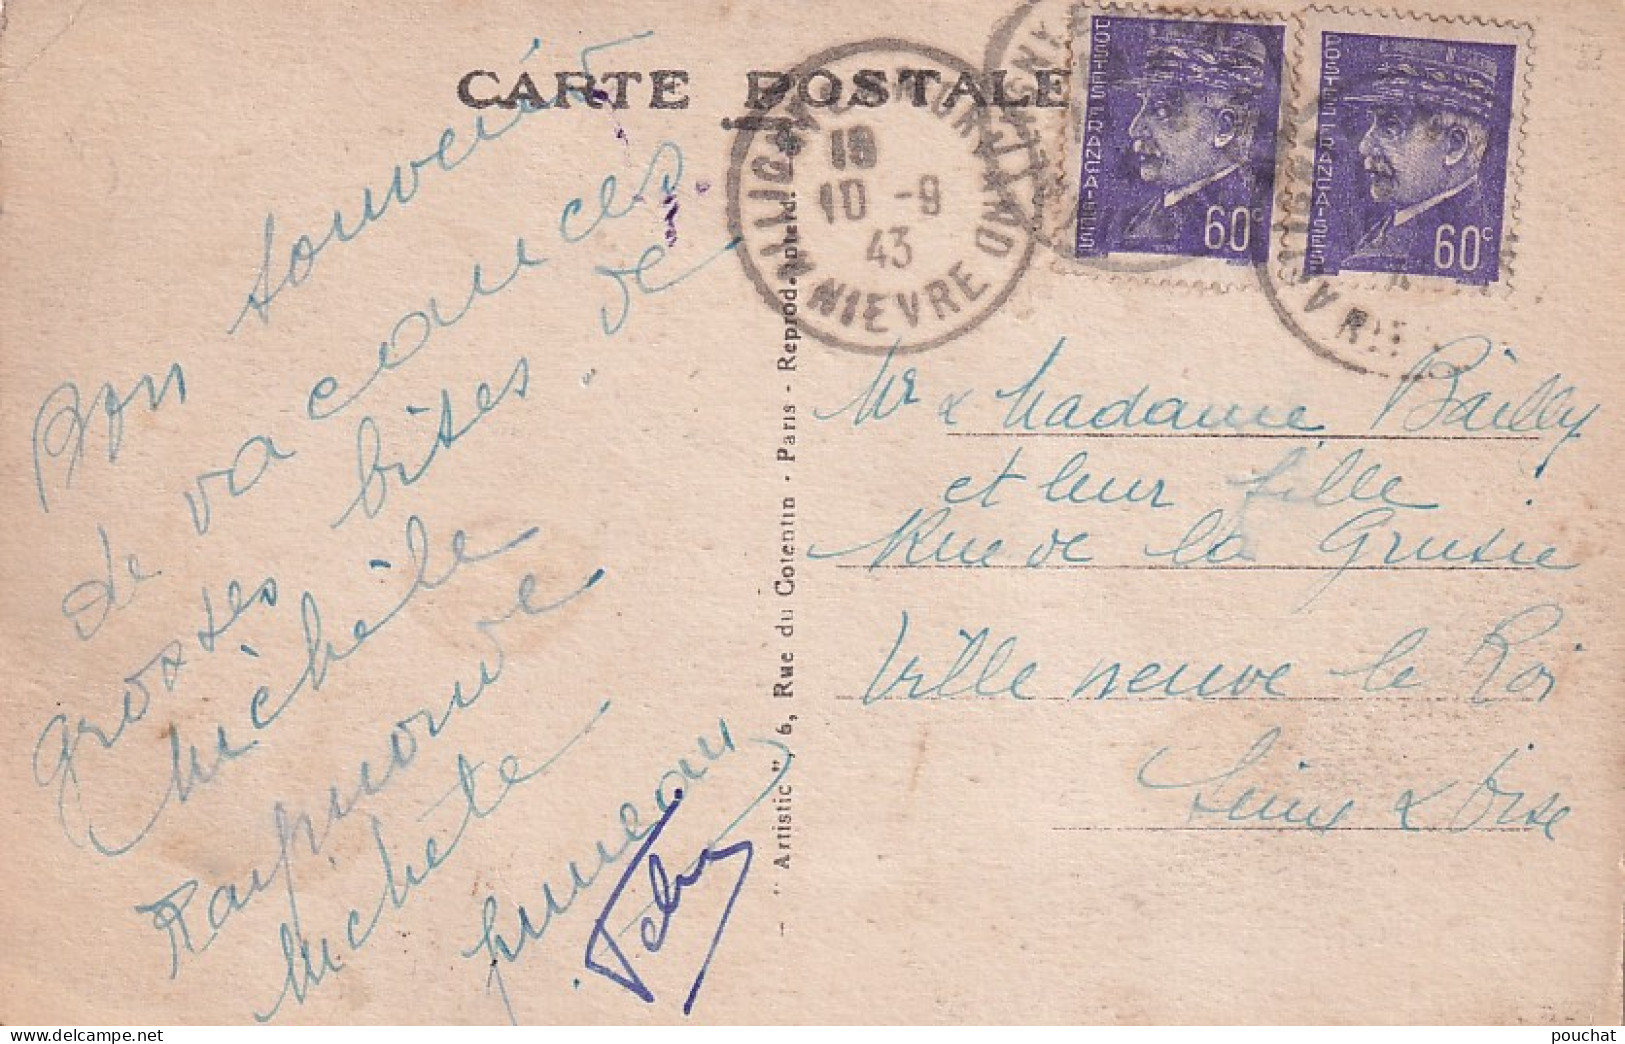 CARTE POSTALE
Bon souvenir
de vacances
grosses bises de
Michèle
Raymonde
Michète
pruneau
18
10 -9
43
NIEVRE
POSTES FRANÇAISES
60c
POSTES FRANÇAISES
60c
Mr & Madame Bailly
et leur fille
Rue de la Grusie
Ville neuve le Roi
Seine & Oise
- "Artistic", 6, Rue du Cotentin - Paris - Reprod. interd.
pouchat